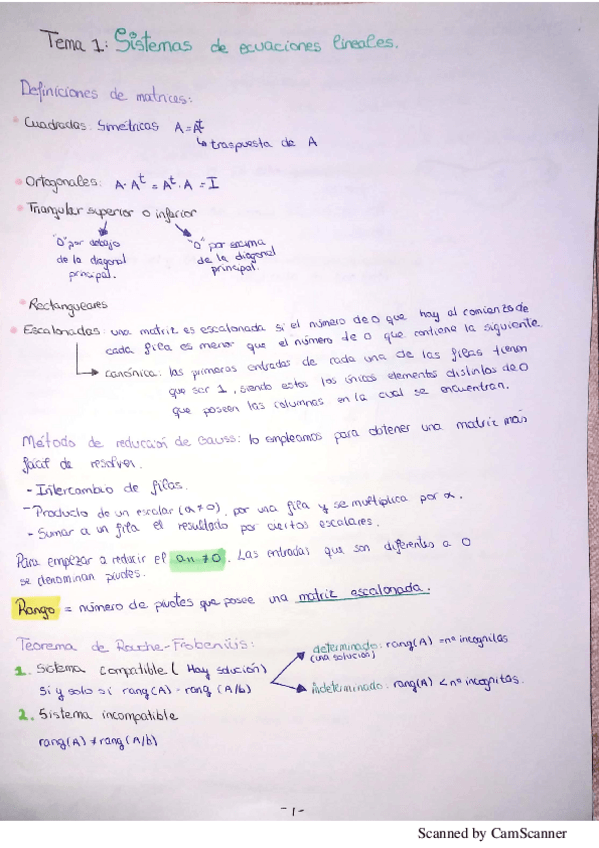 Tema 1: Sistemas de ecuaciones lineales.
Definiciones de matrices:
• Cuadradas: Simétricas A=Aᵗ
↳ traspuesta de A
• Ortogonales: A·Aᵗ = Aᵗ·A = I
• Triangular superior o inferior
"0" por debajo
de la diagonal
principal.
"0" por encima
de la diagonal
principal.
• Rectangulares
• Escalonadas: una matriz es escalonada si el número de 0 que hay al comienzo de
cada fila es menor que el número de 0 que contiene la siguiente.
canónica: las primeras entradas de cada una de las filas tienen
que ser 1, siendo estos los únicos elementos distintos de 0
que poseen las columnas en la cual se encuentran.
Método de reducción de Gauss: lo empleamos para obtener una matriz más
fácil de resolver.
- Intercambio de filas.
- Producto de un escalar (α≠0), por una fila y se multiplica por α.
- Sumar a un fila el resultado por ciertos escalares.
Para empezar a reducir el a₁₁ ≠ 0. Las entradas que son diferentes a 0
se denominan pivotes.
Rango = número de pivotes que posee una matriz escalonada.
Teorema de Rouche-Frobeniüs:
1. Sistema compatible (Hay solución)
Si y solo si rang(A) = rang (A/b)
determinado: rang(A) = nº incognitas
(una solución)
indeterminado: rang(A) < nº incognitas.
2. Sistema incompatible
rang(A) ≠ rang(A/b)
-1-
Scanned by CamScanner